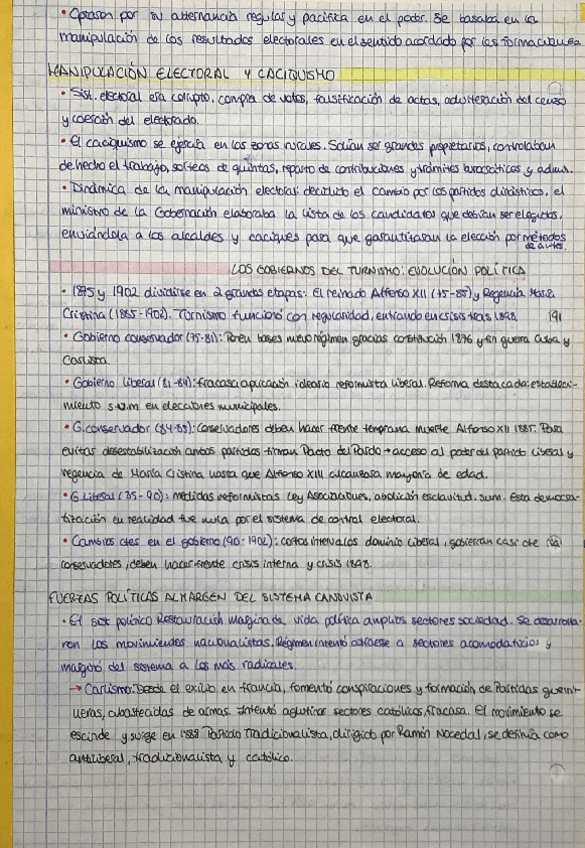 • Optaron por su alternancia regular y pacífica en el poder. Se basaba en la
manipulación de los resultados electorales en el sentido acordado por las
MANIPULACIÓN ELECTORAL Y CACIQUISMO
• Sist. electoral era corrupto, compra de votos, falsificación de actas, adulteración del censo
y coerción del electorado.
• El caciquismo se ejercía en las zonas rurales. Solían ser grandes propietarios, controlaban
de hecho el trabajo, sorteos de quintas, reparto de contribuciones y trámites burocráticos y admin.
• Dinámica de la manipulación electoral: decidido el cambio por los partidos dinásticos, el
ministro de la Gobernación elaboraba la lista de los candidatos que debían ser elegidos,
enviándola a los alcaldes y caciques para que garantizaran la elección por métodos
LOS GOBIERNOS DEL TURNISMO: EVOLUCIÓN POLÍTICA
• 1875 y 1902 dividirse en 2 grandes etapas: El reinado Alfonso XII (75-85) y Regencia María
Cristina (1885-1902). Turnismo funcionó con regularidad, entrando en crisis tras 1898.
• Gobierno conservador (75-81): Ponen bases nuevo régimen gracias constitución 1876 y fin guerra Cuba y
Carlista.
• Gobierno liberal (81-84): fracasa aplicación ideario reformista liberal. Reforma destacada: estableci-
miento s.u.m en elecciones municipales.
• G.conservador (84-85): conservadores deben hacer frente temprana muerte Alfonso XII 1885. Para
evitar desestabilización ambos partidos firman Pacto del Pardo → acceso al poder del partido liberal y
regencia de María Cristina hasta que Alfonso XIII alcanzase mayoría de edad.
• G.liberal (85-90): medidas reformistas Ley Asociaciones, abolición esclavitud, sum. Esta democra-
tización en realidad fue nula por el sistema de control electoral.
• Cambios ctes en el gobierno (90-1902): cortos intervalos dominio liberal, gobiernan casi cte
conservadores, deben hacer frente crisis interna y crisis 1898.
FUERZAS POLÍTICAS AL MARGEN DEL SISTEMA CANOVISTA
• El sist político Restauración margina de vida política amplios sectores sociedad. Se desarrolla-
ron los movimientos nacionalistas. Régimen intentó atraerse a sectores acomodaticios y
marginó del sistema a los más radicales.
→ Carlismo: Desde el exilio en Francia, fomentó conspiraciones y formación de Partidas guerri-
lleras, abastecidas de armas. Intentó aglutinar sectores católicos, fracasa. El movimiento se
escinde y surge en 1888 Partido Tradicionalista, dirigido por Ramón Nocedal, se definía como
antiliberal, tradicionalista y católico.